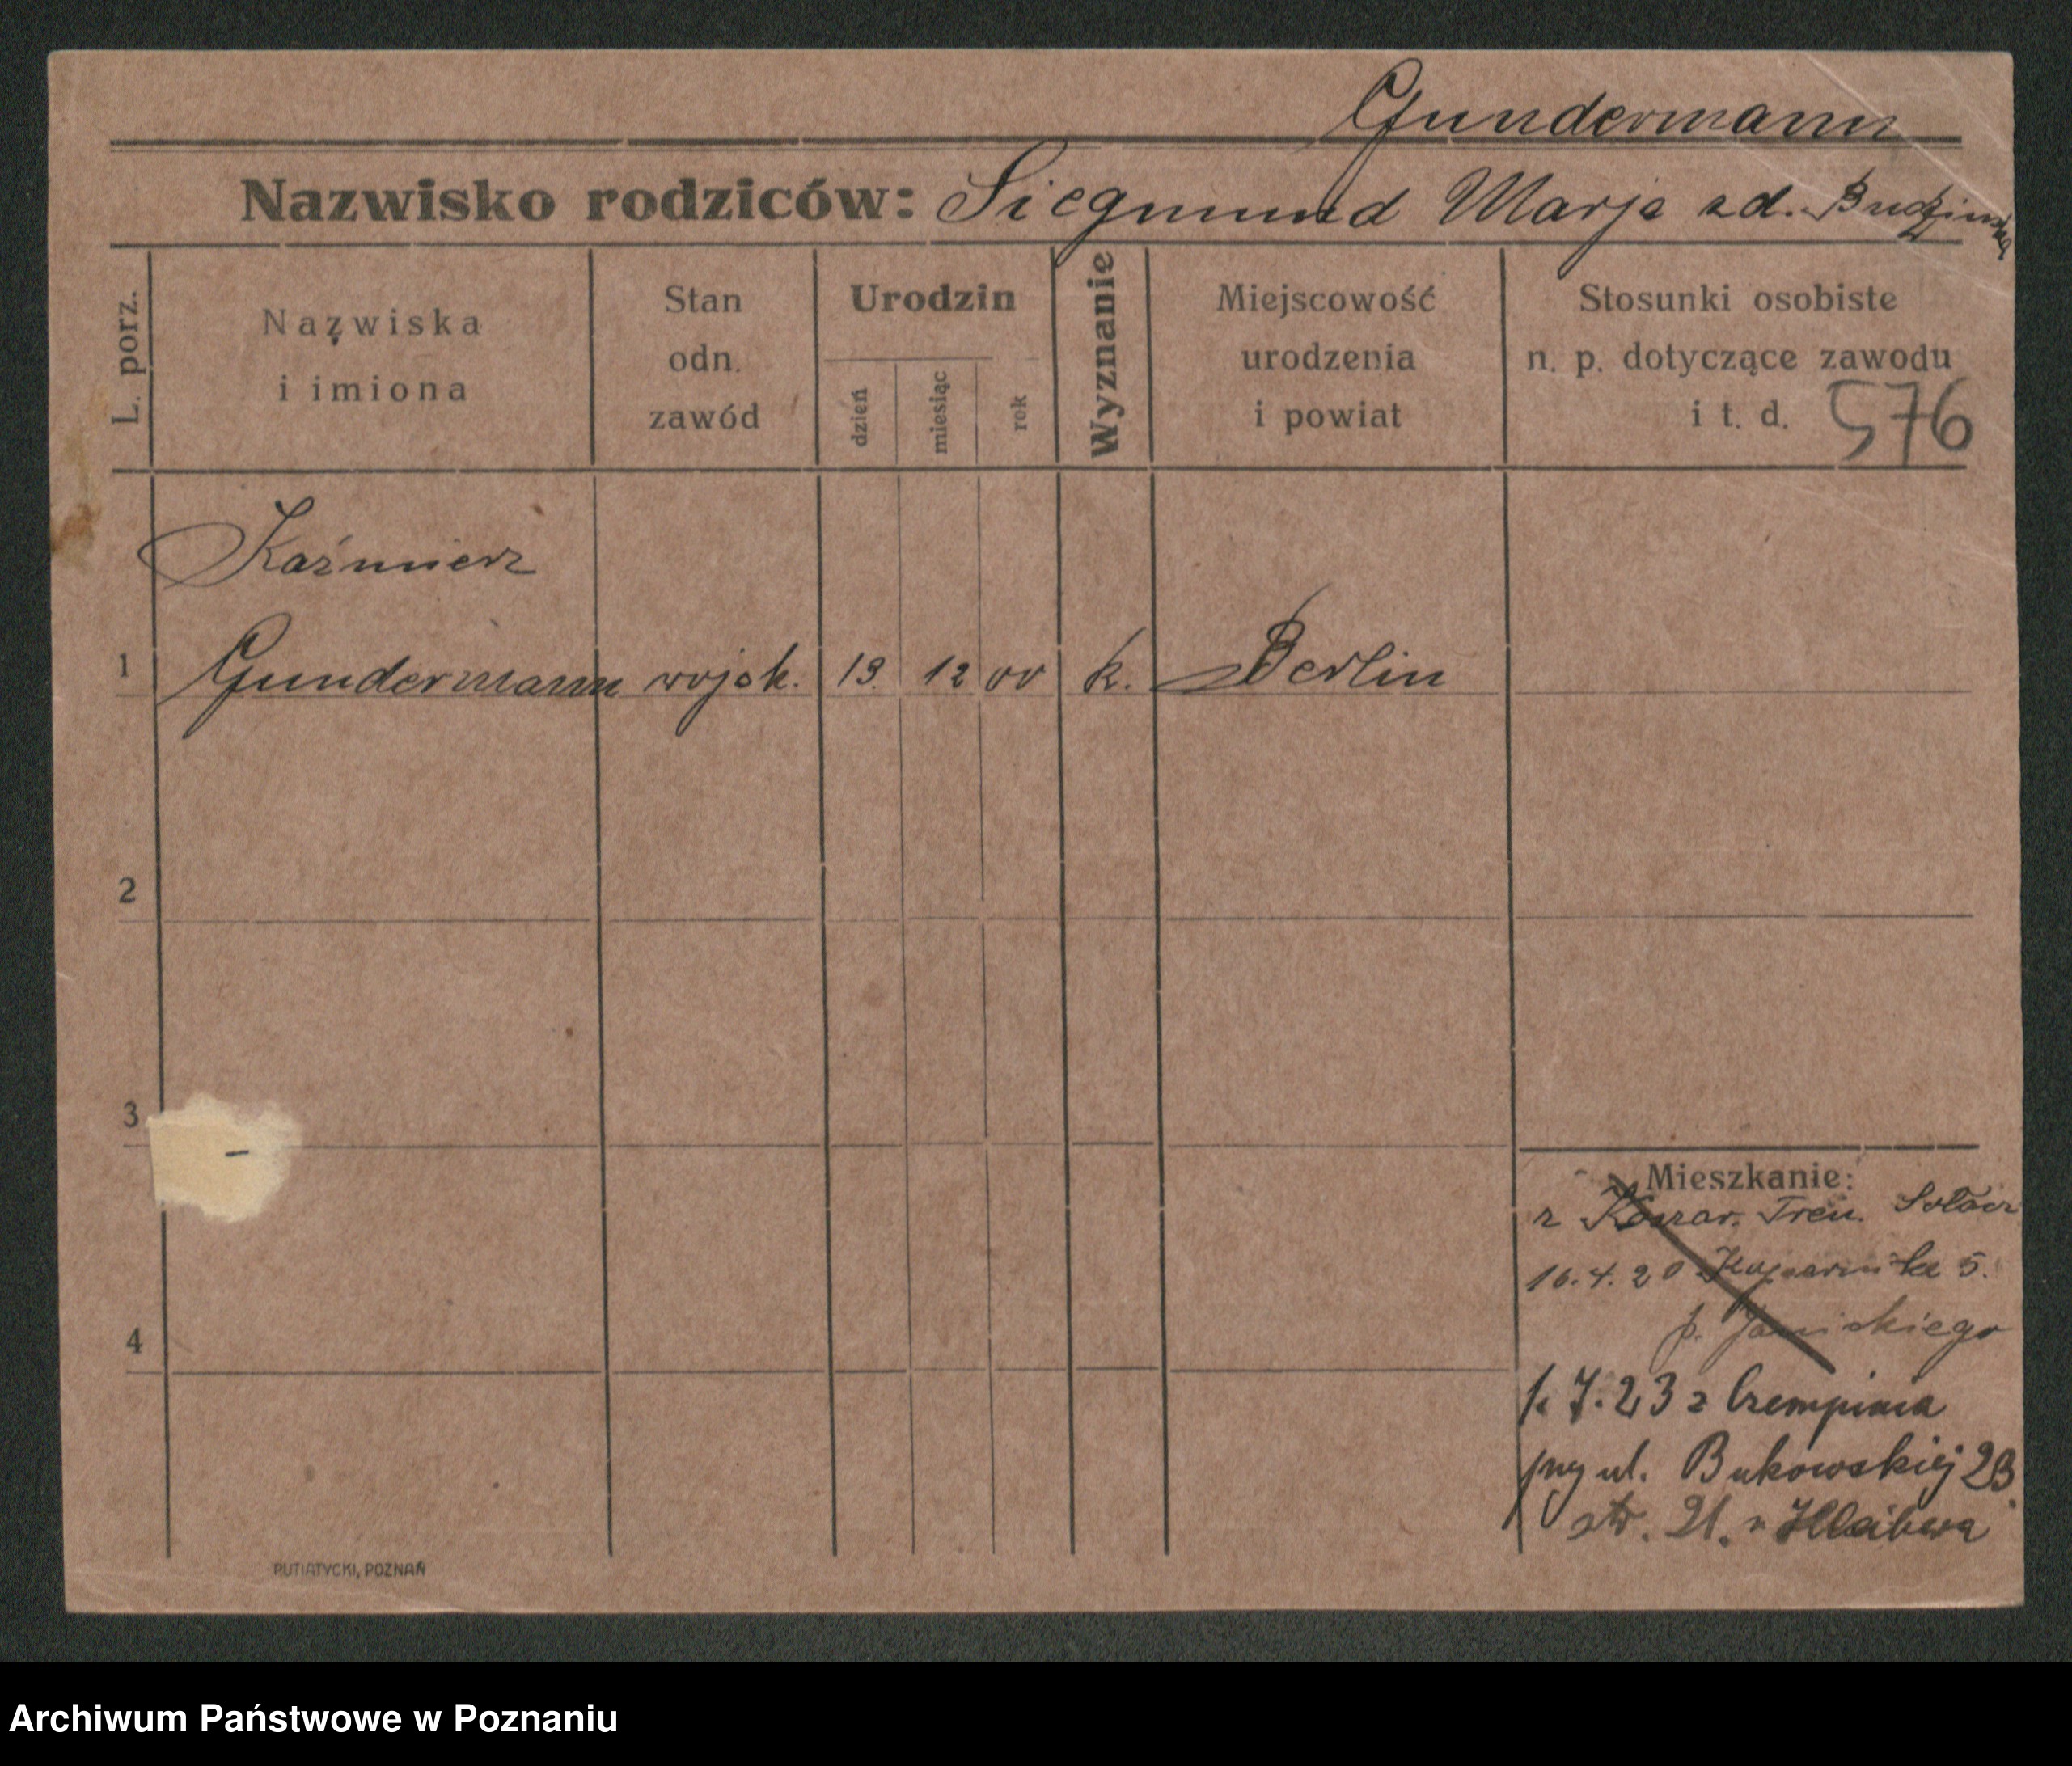 Gundermann
Nazwisko rodziców: Siegmund Marja zd. Budzińska
L. porz.
Nazwiska
i imiona
Stan
odn.
zawód
Urodzin
dzień
miesiąc
rok
Wyznanie
Miejscowość
urodzenia
i powiat
Stosunki osobiste
n. p. dotyczące zawodu
i t. d. 576
Kaźmierz
1 Gundermann wojsk. 13. 12 00 k. Berlin
2
3
4
Mieszkanie:
z Koszar. Tren. Sołacz
16.4.20 5.
p. Janickiego
1. 7. 23 z Czempinia
przy ul. Bukowskiej 23.
str. 21.
PUTIATYCKI, POZNAŃ
Archiwum Państwowe w Poznaniu